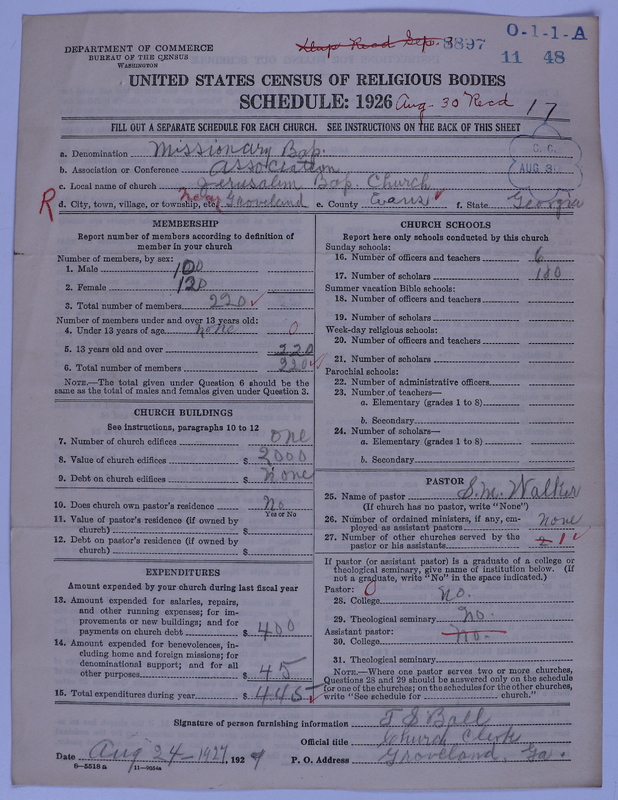 DEPARTMENT OF COMMERCE
BUREAU OF THE CENSUS
WASHINGTON
8897
O-1-1-A
11 48
UNITED STATES CENSUS OF RELIGIOUS BODIES
SCHEDULE: 1926
Aug. 30 Recd
17
FILL OUT A SEPARATE SCHEDULE FOR EACH CHURCH. SEE INSTRUCTIONS ON THE BACK OF THIS SHEET
C. C.
AUG 30
a. Denomination Missionary Bap.
b. Association or Conference Association
c. Local name of church Jerusalem Bap. Church
R
d. City, town, village, or township, etc. near Groveland e. County Evans f. State Georgia
MEMBERSHIP
Report number of members according to definition of
member in your church
Number of members, by sex:
1. Male 100
2. Female 120
3. Total number of members 220
Number of members under and over 13 years old:
4. Under 13 years of age none 0
5. 13 years old and over 220
6. Total number of members 220
NOTE.—The total given under Question 6 should be the
same as the total of males and females given under Question 3.
CHURCH BUILDINGS
See instructions, paragraphs 10 to 12
7. Number of church edifices one
8. Value of church edifices $ 2000
9. Debt on church edifices $ none
10. Does church own pastor's residence No
Yes or No
11. Value of pastor's residence (if owned by
church) $
12. Debt on pastor's residence (if owned by
church) $
EXPENDITURES
Amount expended by your church during last fiscal year
13. Amount expended for salaries, repairs,
and other running expenses; for im-
provements or new buildings; and for
payments on church debt $ 400
14. Amount expended for benevolences, in-
cluding home and foreign missions; for
denominational support; and for all
other purposes $ 45
15. Total expenditures during year $ 445
CHURCH SCHOOLS
Report here only schools conducted by this church
Sunday schools:
16. Number of officers and teachers 6
17. Number of scholars 180
Summer vacation Bible schools:
18. Number of officers and teachers
19. Number of scholars
Week-day religious schools:
20. Number of officers and teachers
21. Number of scholars
Parochial schools:
22. Number of administrative officers
23. Number of teachers—
a. Elementary (grades 1 to 8)
b. Secondary
24. Number of scholars—
a. Elementary (grades 1 to 8)
b. Secondary
PASTOR
25. Name of pastor S. M. Walker
(If church has no pastor, write "None")
26. Number of ordained ministers, if any, em-
ployed as assistant pastors none
27. Number of other churches served by the
pastor or his assistants 2 1
If pastor (or assistant pastor) is a graduate of a college or
theological seminary, give name of institution below. (If
not a graduate, write "No" in the space indicated.)
Pastor:
28. College No.
29. Theological seminary No.
Assistant pastor:
30. College No.
31. Theological seminary
NOTE.—Where one pastor serves two or more churches,
Questions 28 and 29 should be answered only on the schedule
for one of the churches; on the schedules for the other churches,
write "See schedule for church."
Signature of person furnishing information T S Ball
Official title Church Clerk
Date Aug 24-1927, 192 7 P. O. Address Groveland, Ga.
8-5518 a 11-9554a